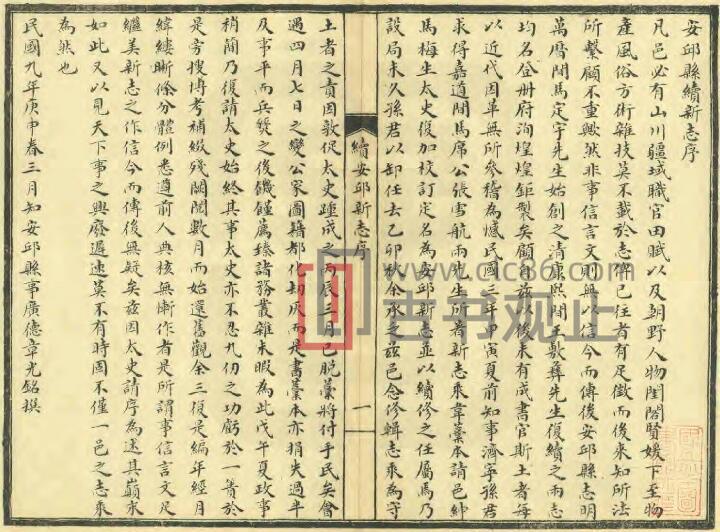 安邱縣續新志序
凡邑必有山川疆域職官田賦以及朝野人物閨閤賢媛下至物
產風俗方術雜技莫不載於志俾已往者有足徵而後來知所法
所繫顧不重歟然非事信言文則無以信今而傳後安邱縣志明
萬曆間馬定宇先生始創之清康熙間王敷彝先生復續之兩志
均名登册府洵煌煌鉅製矣顧自兹以後未有成書官斯土者每
以近代因革無所參稽為憾民國三年甲寅夏前知事濟寧孫君
求得嘉道間馬席公張雪航兩先生所著新志乘韋藁本請邑紳
馬梅生太史復加校訂定名為安邱新志並以續修之任屬馬乃
設局未久孫君以卸任去乙卯秋余承乏兹邑念修輯志乘為守
續安邱新志序
一
土者之責因敦促太史踵成之丙辰三月已脫藁將付手民矣會
遇四月七日之變公家圖籍都化劫灰而是書藁本亦損失過半
及事平而兵燹之後饑饉薦臻諸務叢雜未暇為此戊午夏政事
稍簡乃復請太史始終其事太史亦不忍九仞之功虧於一簣於
是旁搜博考補綴殘闕閱數月而始還舊觀余三復是編年經月
緯縷晰條分體例悉遵前人典核無慚作者是所謂事信言文足
繼美新志之作信今而傳後無疑矣兹因太史請序為述其巔末
如此又以見天下事之興廢遲速莫不有時固不僅一邑之志乘
為然也
民國九年庚申春三月知安邱縣事廣德章光銘撰
www.cic86.com
古书观止